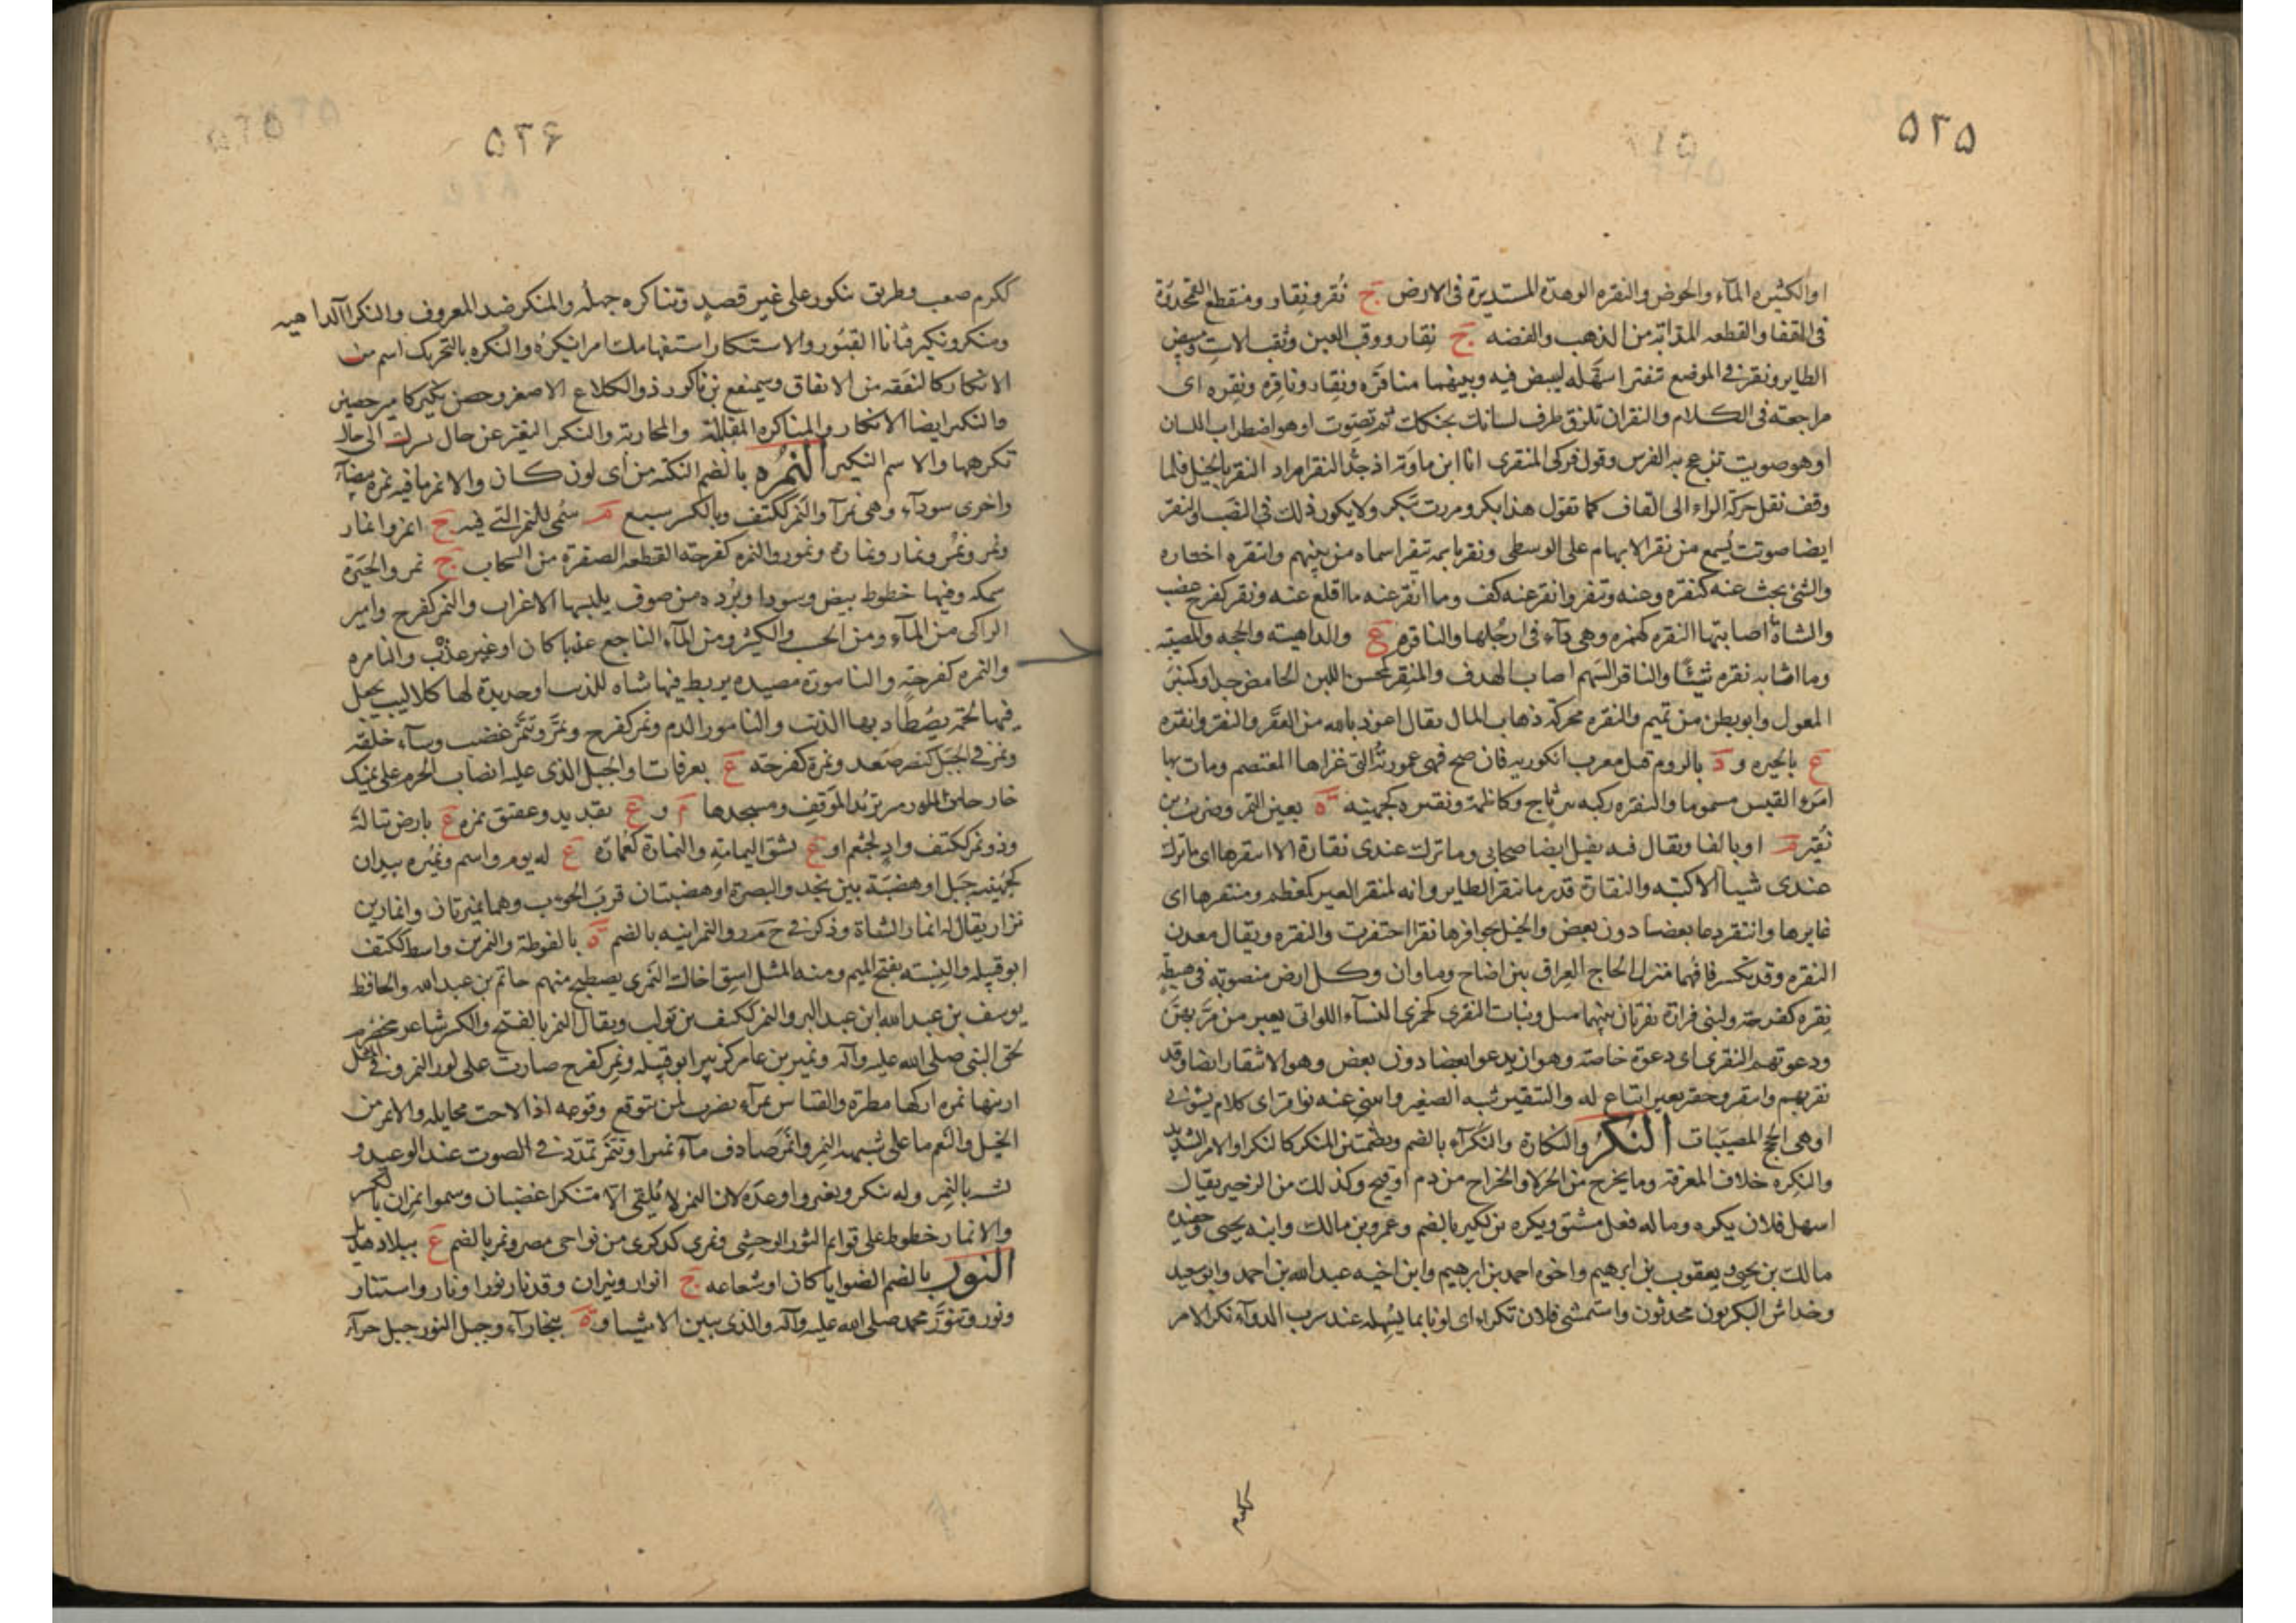 ٥٢٥
او الكثيره المآء والحوض والنقره الوهدة المستديرة فى الارض ج نُقر ونِقار ومنقطع القمحدوة
فى القفا والقطعه المذابة من الذهب والفضه ج نقار ووقب العين وثقب الاست ومبيض
الطاير ونقر فى الموضع تنقيرا سهّله ليبيض فيه وبينهما مناقرة ونقار وناقرة ونقره اى
مراجعته فى الكلام والنقر ان تلزق طرف لسانك بحنكك ثم تصوّت او هو اضطراب اللسان
او هو صويت تزعج به الفرس وقول فدكى المنقرى انا ابن ماوية اذ جدّ النقر اراد النقر بالخيل فلما
وقف نقل حركة الراء الى القاف كما تقول هذا بكر ومررت ببكر ولا يكون ذلك فى النصب والنقر
ايضا صوت يُسمع من نقر الابهام على الوسطى ونقر باسمه تنقيرا سماه من بينهم وانتقره اختاره
والشئ بحث عنه كنقره وعنه وتنقر وانقر عنه كف وما انقر عنه ما اقلع عنه ونقر كفرح غضب
والشاة اصابتها النقره كهمزه وهى دآء فى ارجُلها والناقره ع والداهية والحجة والمصيبة
وما اثابه نقره شيئًا والناقر السهم اصاب الهدف والمنقر كمحسن اللبن الحامض جدا وكمنبر
المعول وابو بطن من تميم والنقره محركة ذهاب المال يقال اعوذ بالله من العقر والنقر وانقره
ع بالحيره و د بالروم قيل معرب انكوريه فان صح فهى عمورية التى غزاها المعتصم ومات بها
امرؤ القيس مسموما والنقره ركية بين ثاج وكاظمة ونقيره كجهينه ة بعين التمر وضريب بن
نُقير م او بالفا ويقال فيه نفيل ايضا صحابى وما ترك عندى نقارة الا انتقرها اى ما ترك
عندى شيئا الا كتبه والنقارة قدر ما ينقر الطاير وانه لمنقر العين كمعظم ومنتقرها اى
غايرها وانتقر دعا بعضا دون بعض والخيل بحوافرها نقرا احتفرت والنقره ويقال معدن
النقره وقد تكسر قافهما منزل لحاج العراق بين اضاخ وماوان وكل ارض منصوبة فى هبطة
نِقره كفرحة ولبنى فزارة نقرتان بينهما ميل وبنات النقرى كجمزى النساء اللواتى يعبن من مرّ بهنّ
ودعوتهم النقرى اى دعوة خاصة وهو ان يدعو بعضا دون بعض وهو الانتقار ايضا وقد
نقر بهم وانتقر وحقير نقير اتباع له والتنقير شبه الصفير واتتنى عنه نواقر اى كلام يسؤنى
او هى الحجج المصيبات النكر والنكارة والنكرآء بالضم وبضمتين المنكر كالنكراء والامر الشديد
والنكره خلاف المعرفة وما يخرج من الحولاء والخراج من دم او قيح وكذلك من الزحير يقال
اسهل فلان نكره وما له فعل مشتق ونكره بن لكيز بالضم وعمرو بن مالك وابنه يحيى وحفيده
مالك بن يحيى ويعقوب بن ابرهيم واخوه احمد بن ابرهيم وابن اخيه عبدالله بن احمد وابو سعيد
وخداش النكريون محدثون واستمشى فلان نكرآء اى لونا مما يسهله عند شرب الدوآء نكر الامر
ككرم
٥٢۶
ككرم صعب وطريق ينكور على غير قصدٍ وتناكره جهله والمنكر ضد المعروف والنكراآلداهيه
ومنكر ونكير فتانا القبُور والاستنكار استفهامك امرا تنكره والنكره بالتحريك اسم من
الانكار كالنفقه من الانفاق وسميفع بن ناكور ذو الكلاع الاصغر وحصن نكير كامير حصين
والنكير ايضا الانكار والمناكره المقاتلة والمحاربة والتنكر التغير عن حال تسرك الى حال
تكرهها والاسم النكير النُمره بالضم النكتة من اى لون كان والانمر ما فيه نمره بيضآء
واخرى سودآء وهى نمرآ والنَمِر ككتف وبالكسر سبع م سُمى للنمر التى فيه ج انمر وانمار
ونمر ونُمُر ونمار ونمارة ونمور والنمره كفرحة القطعة الصغرة من السحاب ج نمر والحبرة
سمكه وفيها خطوط بيض وسود او بُرده من صوف يلبسها الاعراب والنمر كفرح وامير
الزاكى من المآء ومن الحسب والكثير ومن المآء الناجع عذبا كان او غير عذب والنامره
والنمره كفرحة والنامورة مصيده يربط فيها شاه للذئب او حديدة لها كلاليب يجعل
فيها لحمة يصطاد بها الذئب والنامور الدم ونمر كفرح ونمّر وتنمّر غضب وسآء خلقه
ونمر فى الجبل كنصر صعد ونمرة كفرحه ع بعرفات او الجبل الذى عليه انصاب الحرم على يمينك
خارجا من المازمين تريد الموقف ومسجدها م و ع بقديد وعقيق نمره ع بارض تبالة
وذو نمر ككتف وادٍ لجشم او ع بشق اليمامة والنمارة كعُمارة ع له يوم واسم ونُميره بيدان
كجُهينه جَبل او هضبَة بين نجد والبصرة او هضبتان قرب الحوءب وهما نميرتان وانمار بن
نزار يقال له انمار الشاة وذكر فى ح م ر والنمرانيه بالضم ة بالغوطة والنمر بن واسط ككتف
ابو قبيله والنسبة بفتح الميم ومنه المثل اسق اخاك النَمَرى يصطبح منهم حاتم بن عبدالله والحافظ
يوسف بن عبدالله ابن عبد البر والنمر ككتف بن تولب ويقال النمر بالفتح والكسر شاعر مخضرم
لحق النبى صلى الله عليه وآله ونمير بن عامر كزبير ابو قبيله ونمر كفرح صارت على لون النمر وفى المثل
ارنيها نمره اركها مطرة والقياس نمرآء يضرب لمن يتوقع وقوعه اذا لاحت مخايله والانمر من
الخيل والنعم ما على شبه النمر وانمر صادف مآء نميرا وتنمّر تمدّد فى الصوت عند الوعيد و
تشبه بالنمر وله تنكر وتغير واوعده لان النمر لا يُلقى الّا متنكرا غضبان وسموا نِمران بالكسر
والانمار خطوط على قوايم الثور الوحشى ونمرى كذكرى من نواحى مصر ونمر بالضم ع ببلاد هذيل
النور بالضم الضو ايا كان او شعاعه ج انوار ونيران وقد نار نورا وانار واستنار
ونور وتنوّر محمد صلى الله عليه وآله والذى يبين الاشيا و ة ببخارآء وجبل النور جبل حرآء